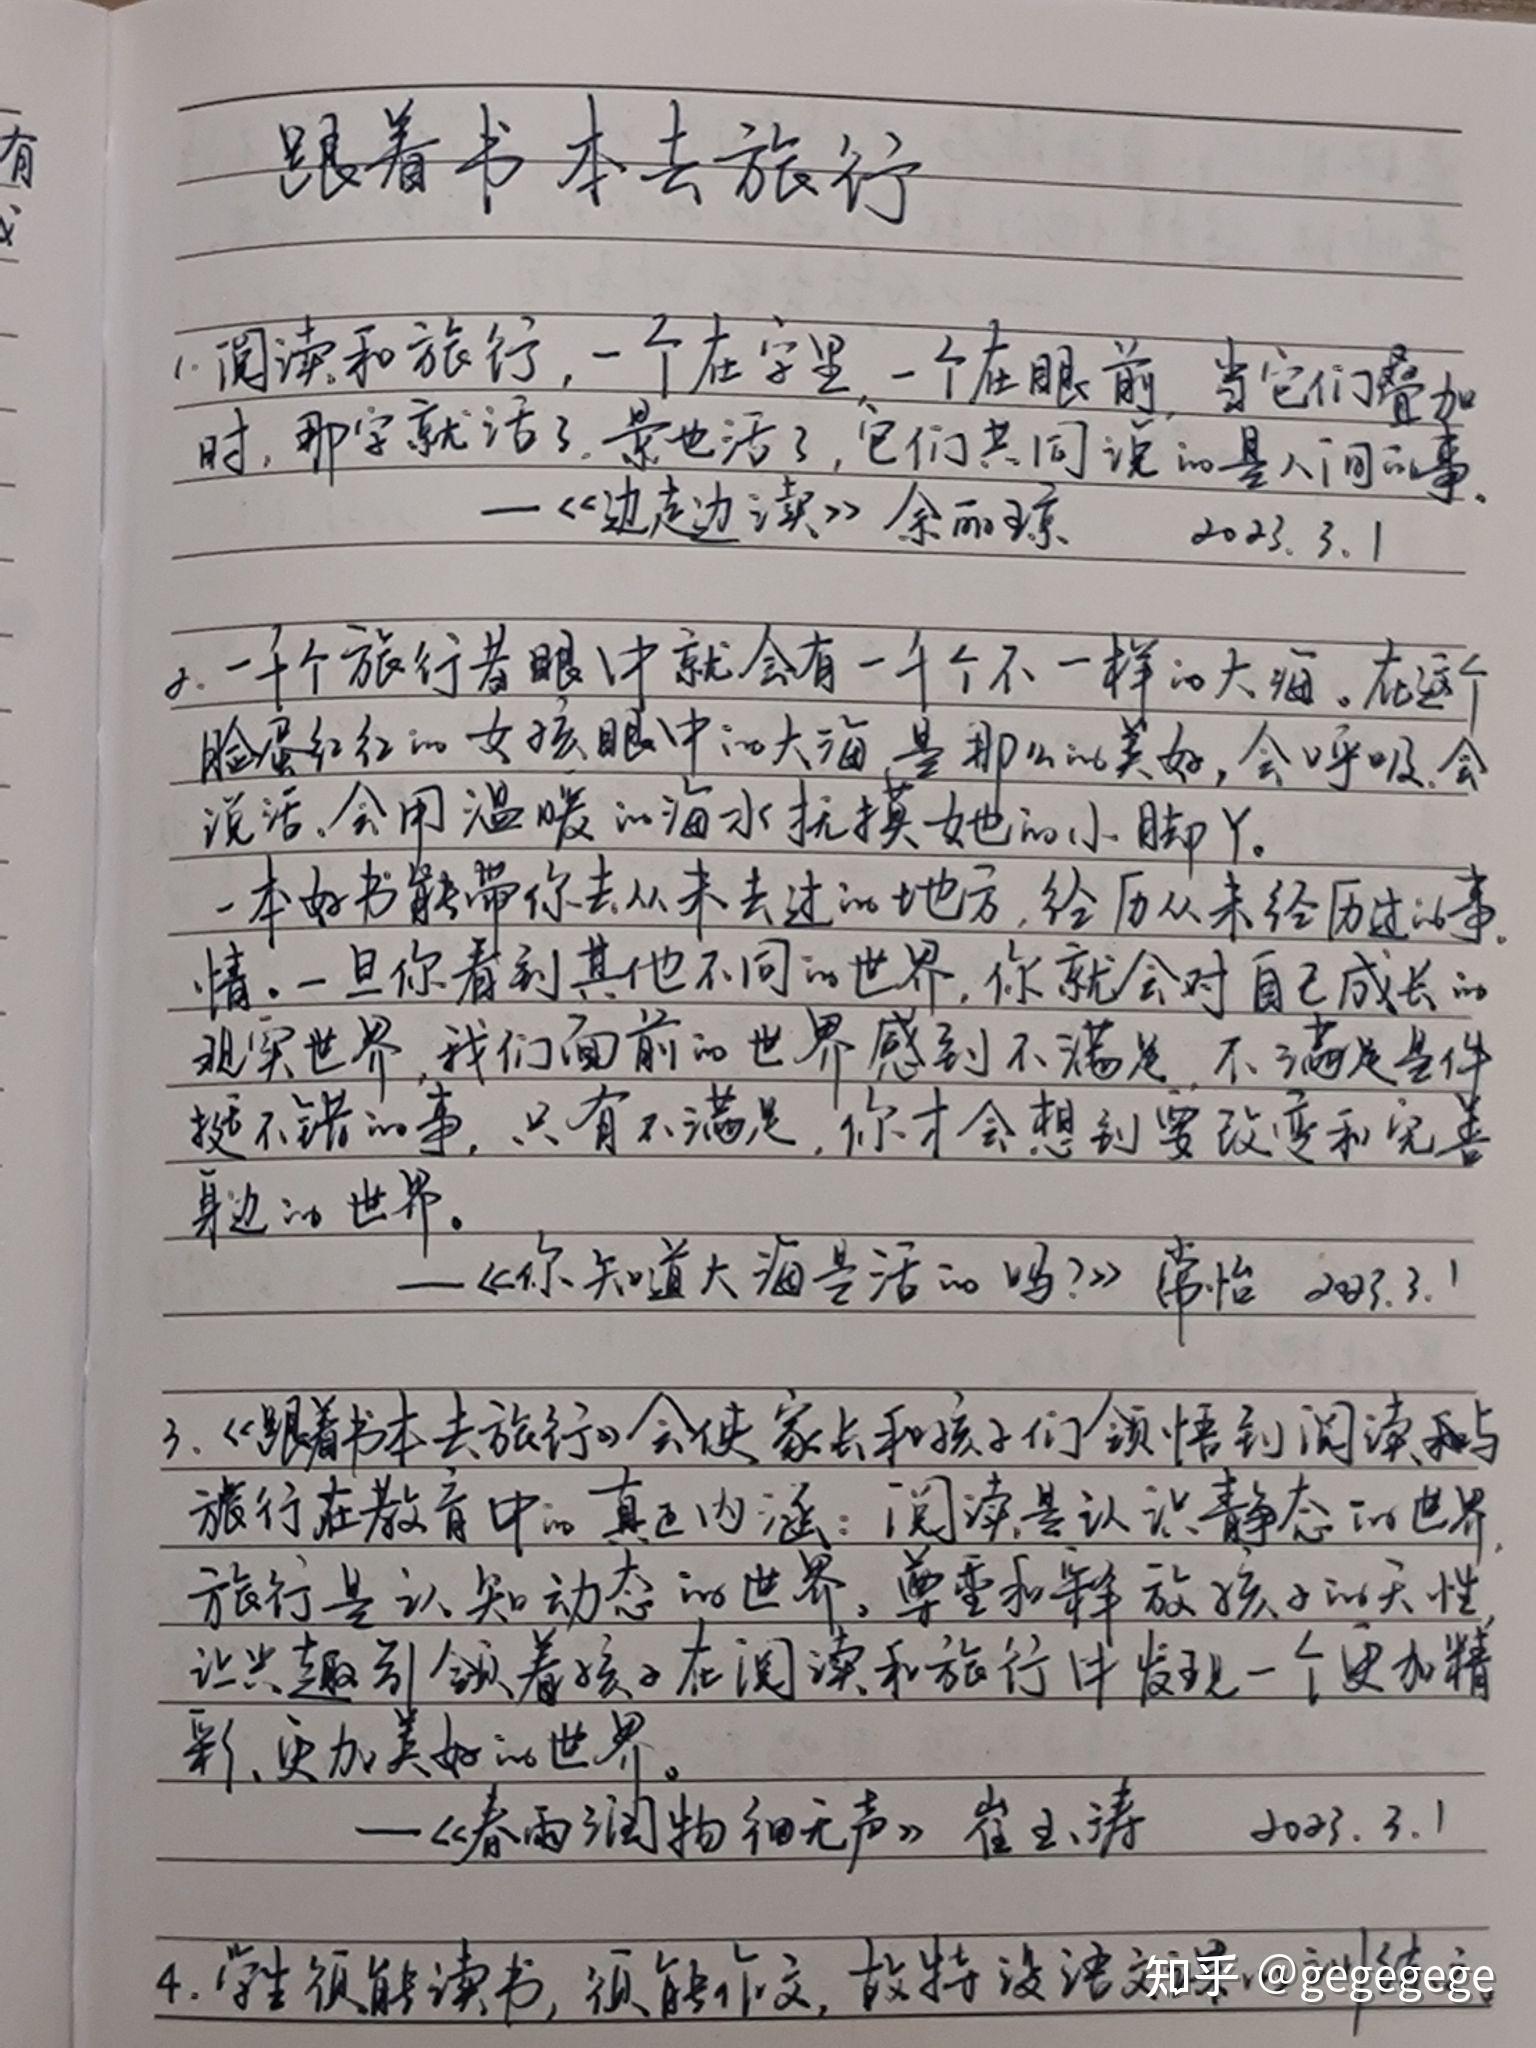 有
跟着书本去旅行
1.阅读和旅行,一个在字里,一个在眼前,当它们叠加
时,那字就活了.景也活了,它们共同说的是人间的事.
—《边走边读》余丽琼 2023.3.1
2.一千个旅行者眼中就会有一千个不一样的大海。在这个
脸蛋红红的女孩眼中的大海,是那么的美好,会呼吸、会
说话、会用温暖的海水抚摸她的小脚丫。
一本好书能带你去从未去过的地方,经历从未经历过的事
情。一旦你看到其他不同的世界,你就会对自己成长的
现实世界,我们面前的世界感到不满足,不满足是件
挺不错的事,只有不满足,你才会想到要改变和完善
身边的世界。
—《你知道大海是活的吗?》常怡 2023.3.1
3.《跟着书本去旅行》会使家长和孩子们领悟到阅读和与
旅行在教育中的真正内涵:阅读是认识静态的世界,
旅行是认知动态的世界。尊重和释放孩子的天性,
让兴趣引领着孩子在阅读和旅行中发现一个更加精
彩、更加美好的世界。
—《春雨润物细无声》崔玉涛 2023.3.1
4.学生须能读书,须能作文,故特设语文
知乎 @gegegege